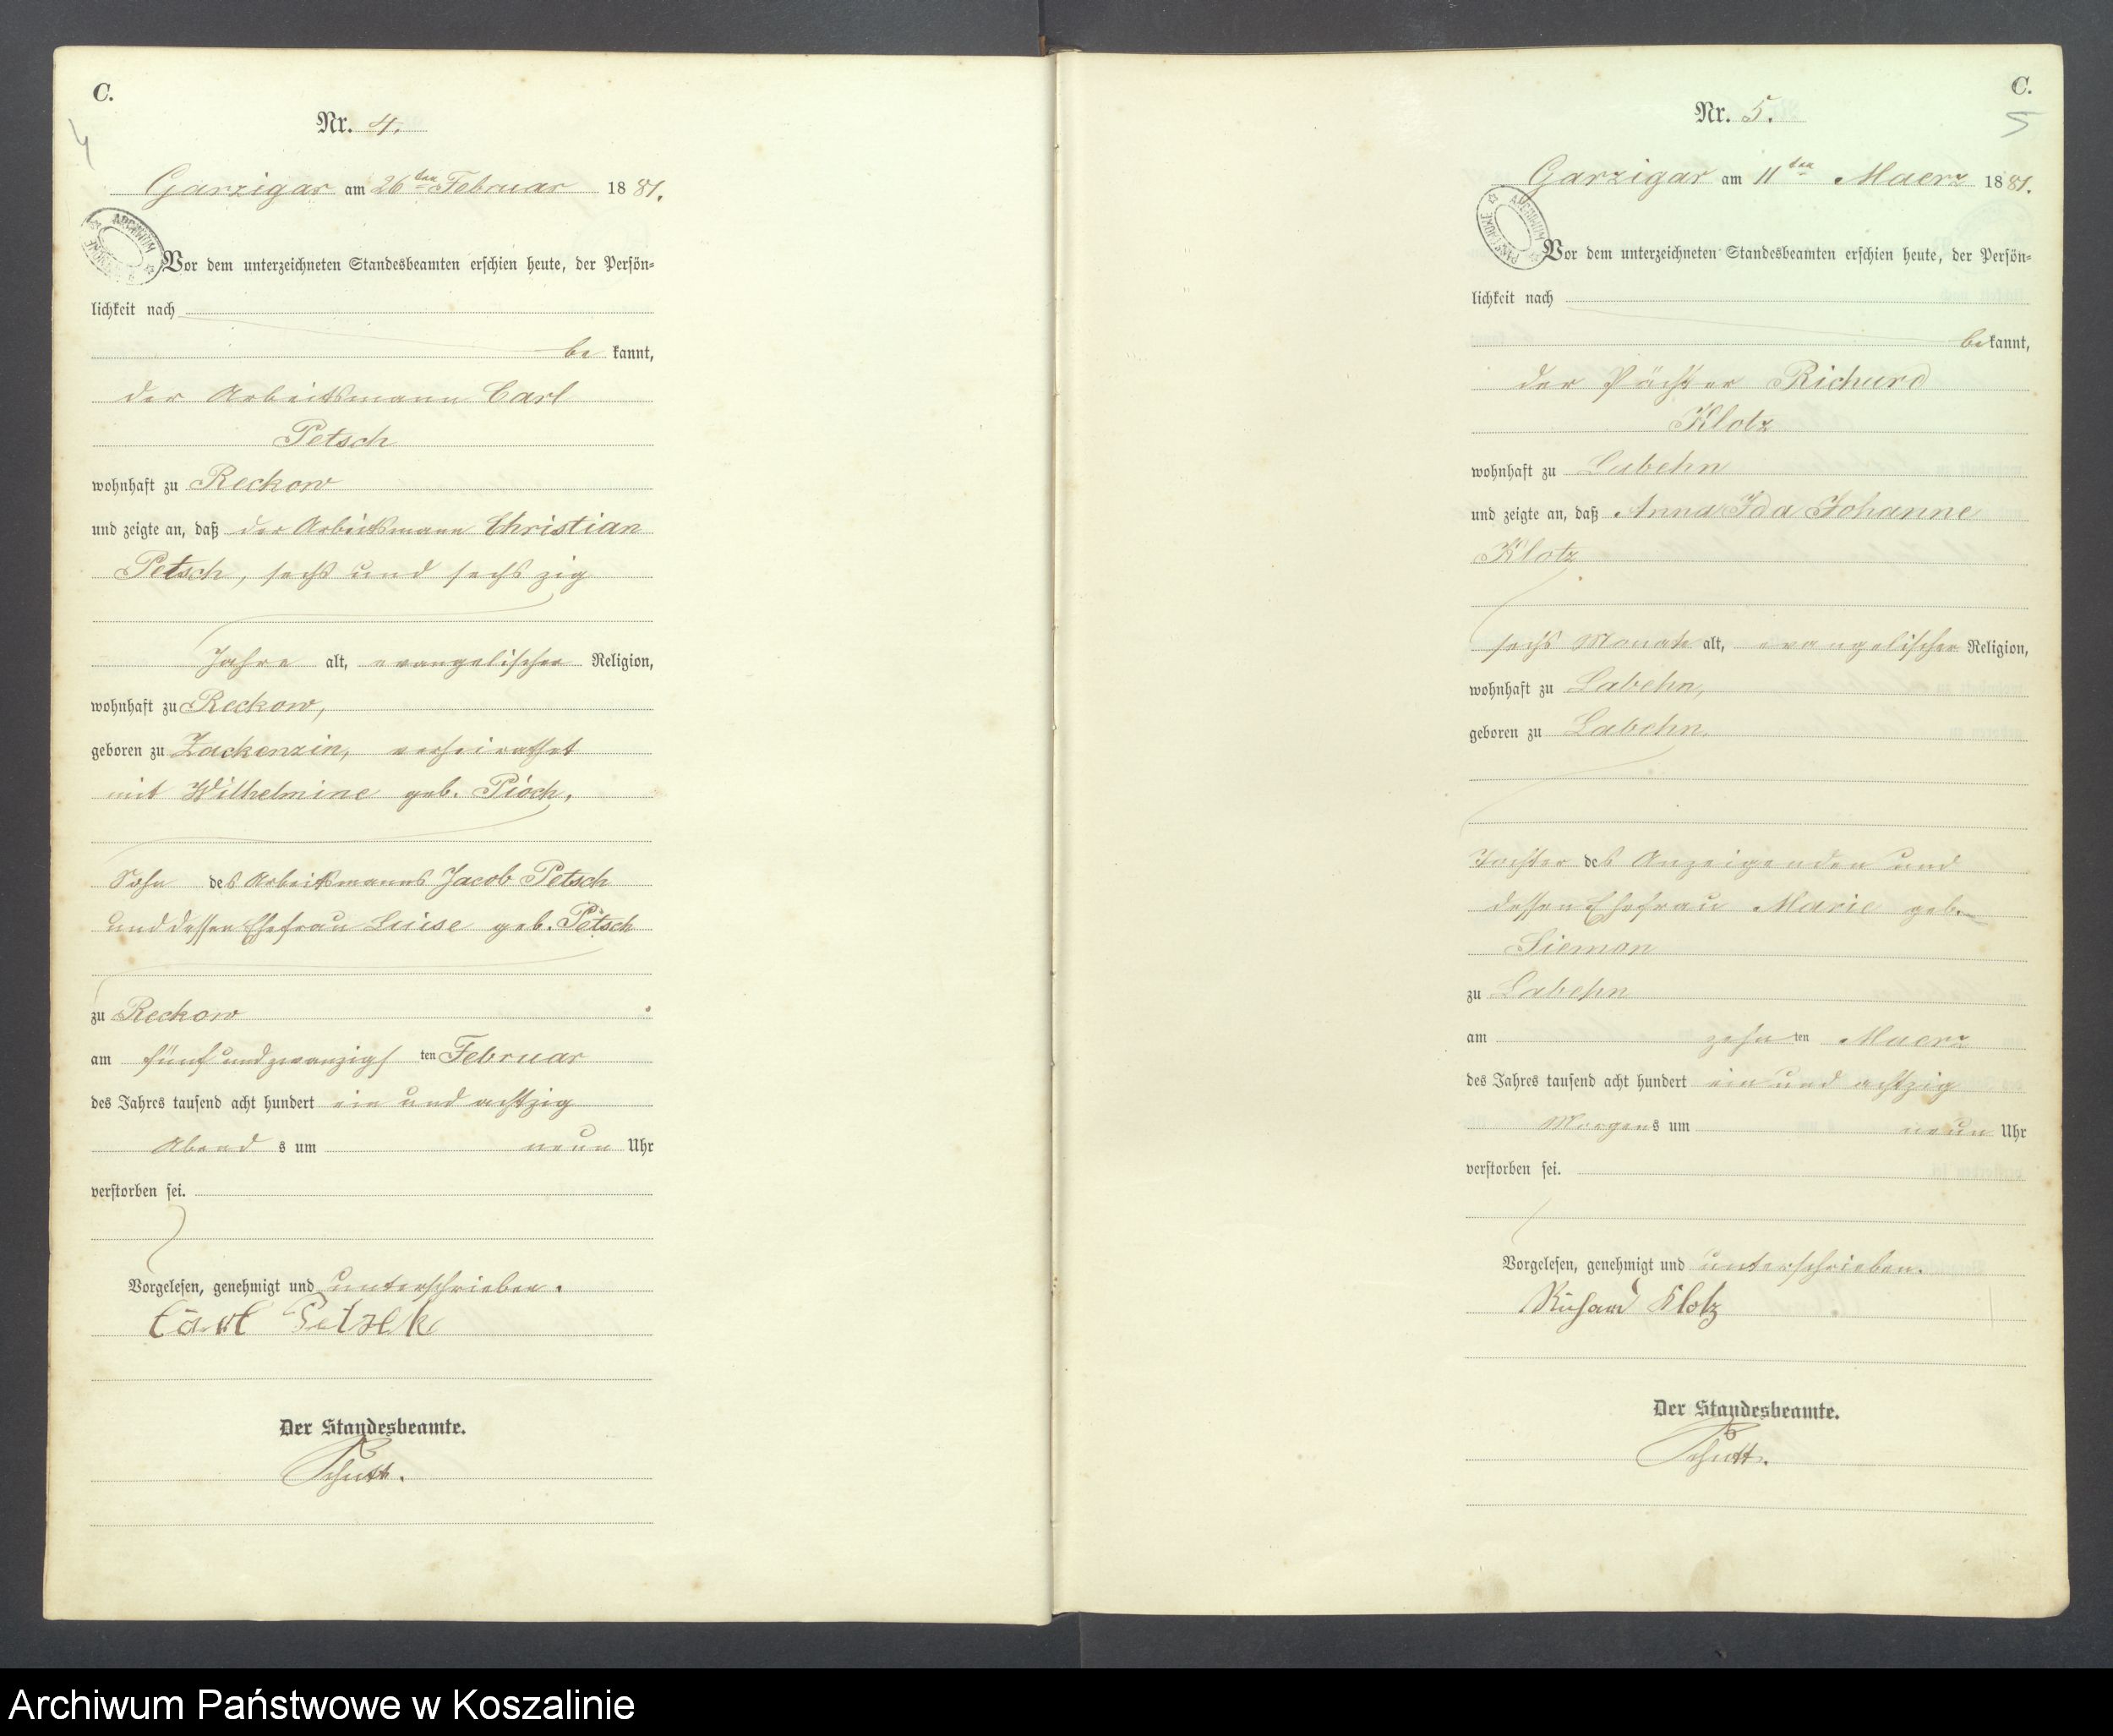 C.
4
Nr. 4.
Garzigar am 26ten Februar 1881.
Vor dem unterzeichneten Standesbeamten erschien heute, der Persön-
lichkeit nach
be kannt,
der Arbeitsmann Carl
Petsch
wohnhaft zu Reckow
und zeigte an, daß der Arbeitsmann Christian
Petsch, sechs und sechszig
Jahre alt, evangelischer Religion,
wohnhaft zu Reckow,
geboren zu Zackenzin, verheirathet
mit Wilhelmine geb. Pioch,
Sohn des Arbeitsmanns Jacob Petsch
und dessen Ehefrau Luise geb. Petsch
zu Reckow
am fünf und zwanzigs ten Februar
des Jahres tausend acht hundert ein und achtzig
Abend s um neun Uhr
verstorben sei.
Vorgelesen, genehmigt und unterschrieben.
Carl
Der Standesbeamte.
C.
5
Nr. 5.
Garzigar am 11ten Maerz 1881.
Vor dem unterzeichneten Standesbeamten erschien heute, der Persön-
lichkeit nach
bekannt,
der Pächter Richard
Klotz
wohnhaft zu Labehn
und zeigte an, daß Anna Ida Johanne
Klotz
sechs Monate alt, evangelischer Religion,
wohnhaft zu Labehn,
geboren zu Labehn,
Tochter des Anzeigenden und
dessen Ehefrau Marie geb.
Siemon
zu Labehn
am zehn ten Maerz
des Jahres tausend acht hundert ein und achtzig
Morgens um neun Uhr
verstorben sei.
Vorgelesen, genehmigt und unterschrieben.
Richard Klotz
Der Standesbeamte.
Archiwum Państwowe w Koszalinie